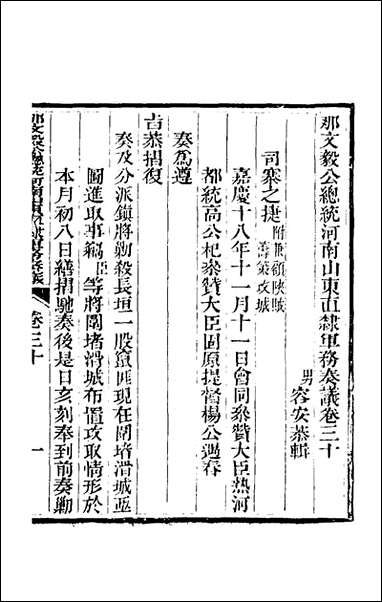 那文毅公總統河南山東直隸軍務奏議卷三十
男容安恭輯
司寨之捷
附剿
籌策攻城
嘉慶十八年十一月十一日會同叅贊大臣熱河
都統高公杞叅贊大臣固原提督楊公遇春
奏爲遵
旨恭摺復
奏及分派鎮將勦殺長垣一股竄匪現在圍堵滑城亟
圖進取事竊臣等將圍堵滑城布置攻取情形於
本月初八日繕摺馳奏後是日亥刻奉到前奏勦
卷三十
一